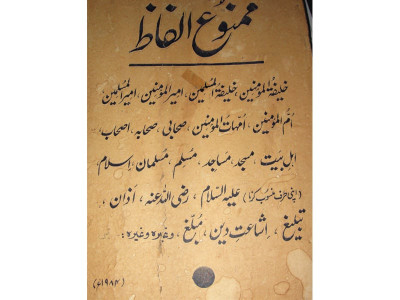 ممنوع الفاظ
خلیفۃ المومنین، خلیفۃ المسلمین، امیر المومنین، امیر المسلمین
ام المومنین، امہات المومنین، صحابی، صحابہ، اصحاب،
اہل بیت، مسجد، مساجد، مسلم، مسلمان، اسلام
(اپنی طرف منسوب کرنا) علیہ السلام، رضی اللہ عنہ، اذان،
تبلیغ، اشاعت دین، مبلغ، وغیرہ وغیرہ:
(۱۹۸۴ء)